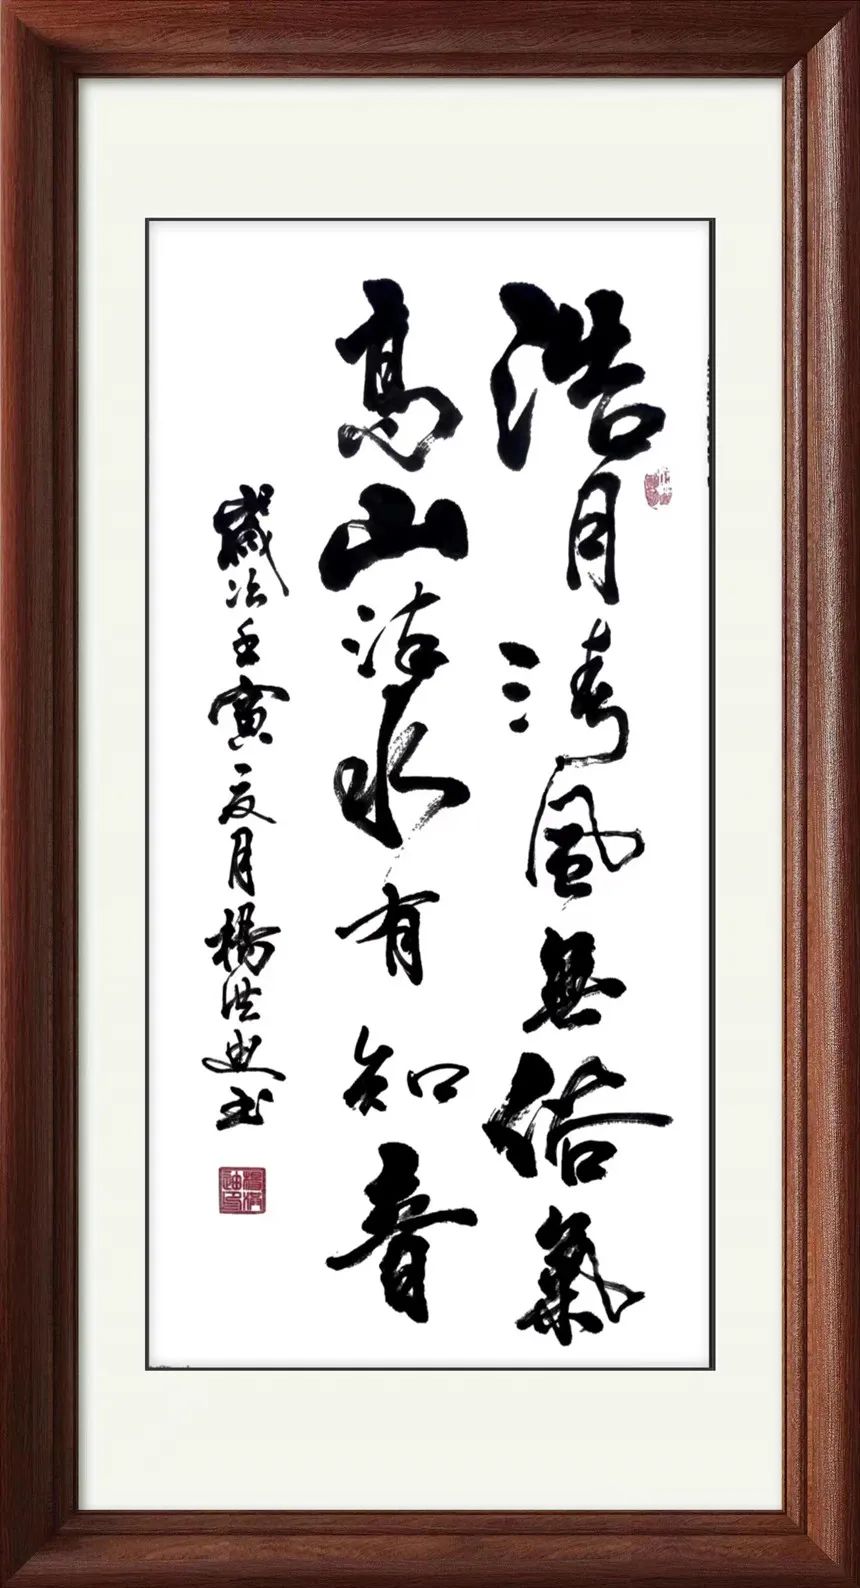 浩月清風無俗氣
高山流水有知音
歲次壬寅夏月楊洪迪书